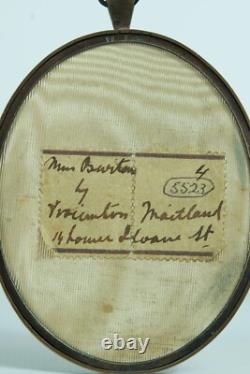 Mrs Burton 4
by 5523
Maitland
14 Lower Sloane St
111413